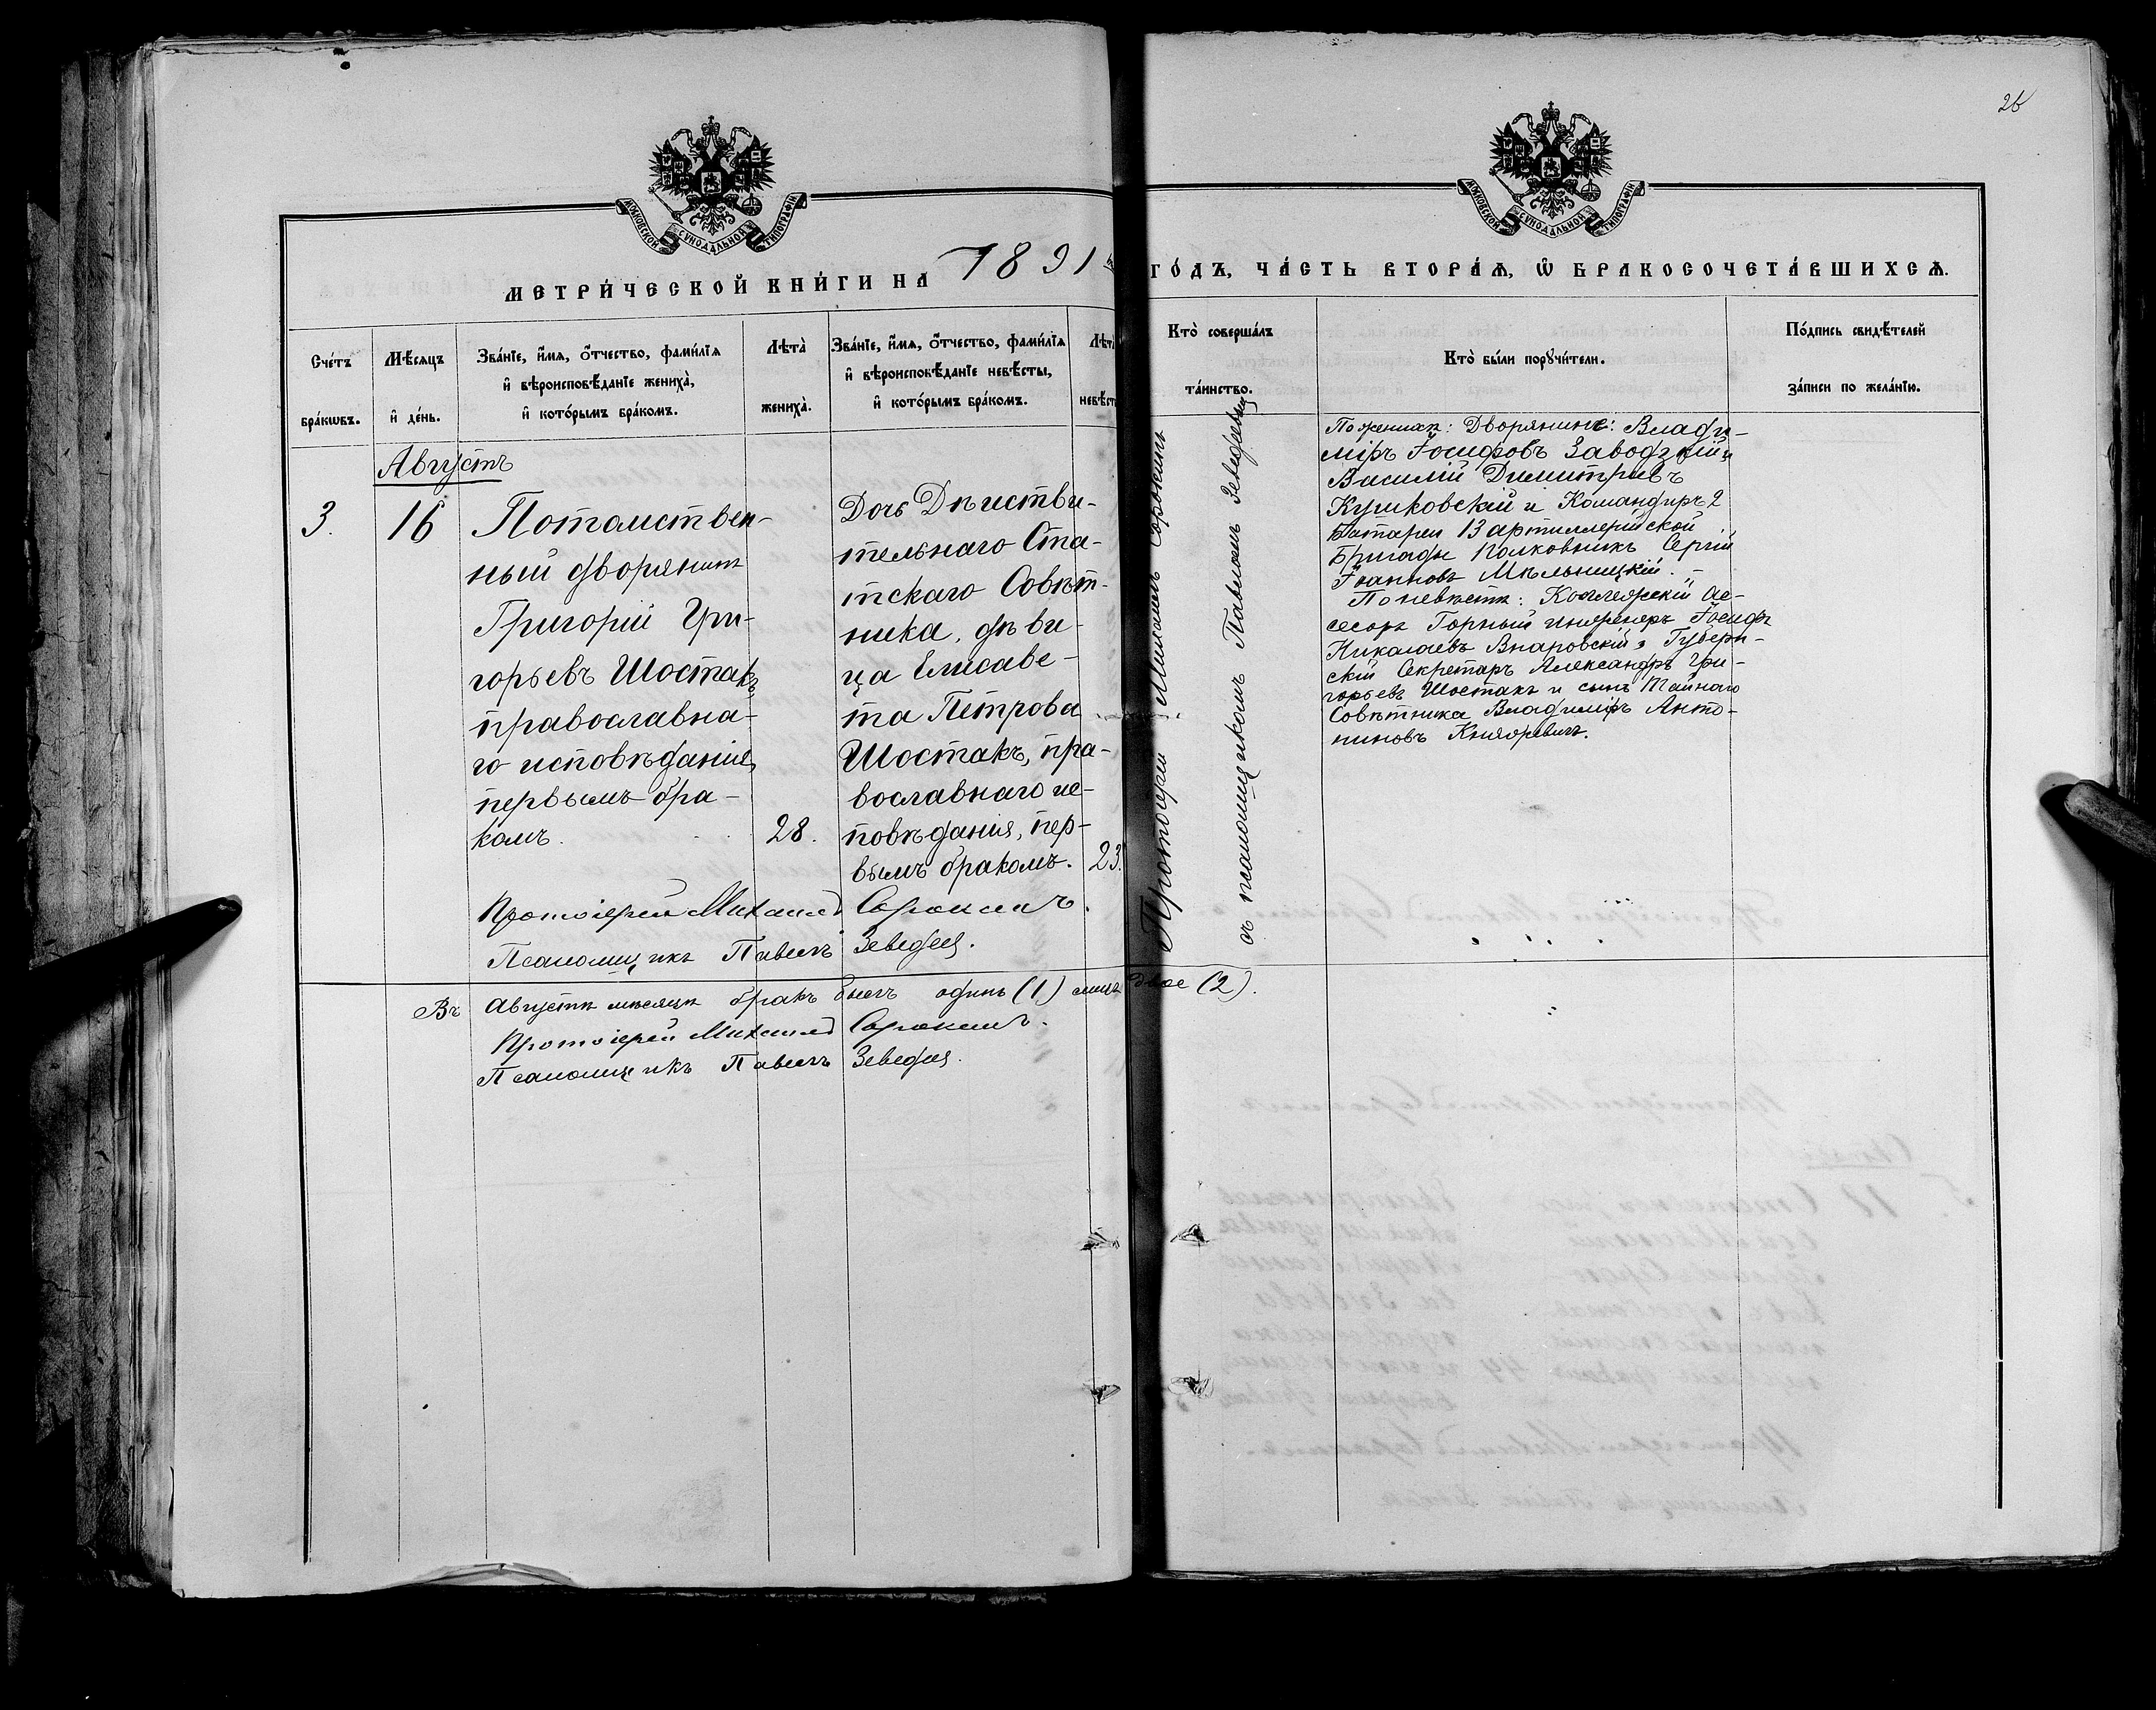 26
МОСКОВСКОЙ СѴНОДАЛЬНОЙ ТИПОГРАФІИ
МОСКОВСКОЙ СѴНОДАЛЬНОЙ ТИПОГРАФІИ
МЕТРИ́ЧЕСКОЙ КНИ́ГИ НА 1891 ГО́ДЪ, ЧА́СТЬ ВТОРА́Ѧ, Ѽ БРАКОСОЧЕТА́ВШИХСѦ.
Сче́тъ
бра́кѡвъ.
Мѣ́сяцъ
и҆ де́нь.
Зва́нїе, и҆́мѧ, ѻ҆́тчество, фами́лїѧ
и҆ вѣроисповѣ́данїе жениха̀,
и҆ кото́рымъ бра́комъ.
Лѣта̀
жениха̀.
Зва́нїе, и҆́мѧ, ѻ҆́тчество, фами́лїѧ
и҆ вѣроисповѣ́данїе невѣ́сты,
и҆ кото́рымъ бра́комъ.
Лѣта̀
невѣ́сты
Кто̀ соверша́лъ
та́инство.
Кто̀ бы́ли порꙋчи́тели.
По́дпись свидѣ́телей
за́писи по жела́нїю.
Августъ
3.
16
Потомствен-
ный дворянинъ
Григорій Гри-
горьевъ Шостакъ,
православна-
го исповѣданія,
первымъ бра-
комъ.
28.
Дочь Дѣйстви-
тельнаго Ста-
тскаго Совѣт-
ника, дѣви-
ца Елисаве-
та Петрова
Шостакъ, пра-
вославнаго ис-
повѣданія, пер-
вымъ бракомъ.
23.
Протоіерей Михаилъ Сорокинъ
съ псаломщикомъ Павломъ Зеведеемъ
По женихѣ: Дворяне: Влади-
міръ Іосифовъ Заводзкій и
Василій Димитріевъ
Куликовскій и Командиръ 2
Батареи 13 артиллерійской
Бригады Полковникъ Сергій
Іоанновъ Мѣльницкій. -
По невѣстѣ: Коллежскій Ас-
сесоръ Горный инженеръ Іосифъ
Николаевъ Внаровскій, Губерн-
скій Секретарь Александръ Гри-
горьевъ Шостакъ и сынъ Тайнаго
Совѣтника Владиміръ Анто-
ниновъ Княжевичъ.
Протоіерей Михаилъ Сорокинъ.
Псаломщикъ Павелъ Зеведей.
Въ Августѣ мѣсяцѣ бракъ былъ одинъ (1) лицъ двое (2).
Протоіерей Михаилъ Сорокинъ.
Псаломщикъ Павелъ Зеведей.